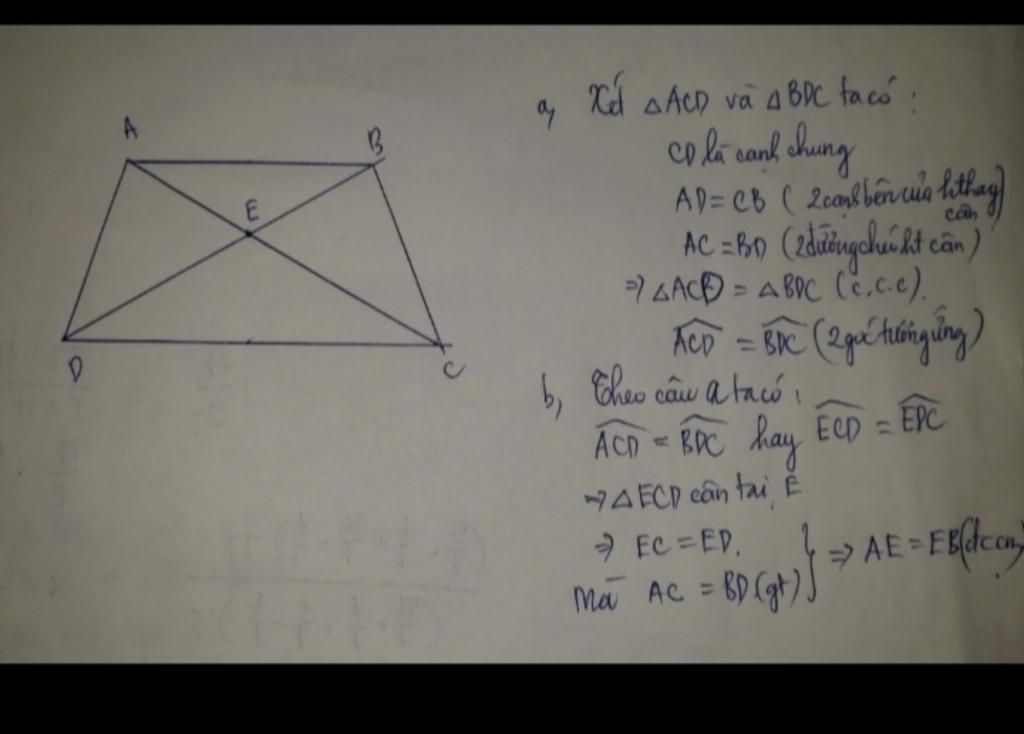 A
B
E
D
C
a, Xét △ACD và △BDC ta có :
CD là cạnh chung
AD = CB ( 2 cạnh bên của hthang
cân)
AC = BD (2 đường chéo ht cân)
⇒ △ACD = △BDC (c.c.c).
ACD = BDC (2 góc tương ứng)
b, Theo câu a ta có :
ACD = BDC hay ECD = EDC
⇒ △ECD cân tại E
⇒ EC = ED. } ⇒ AE = EB (đccm)
Mà AC = BD (gt)